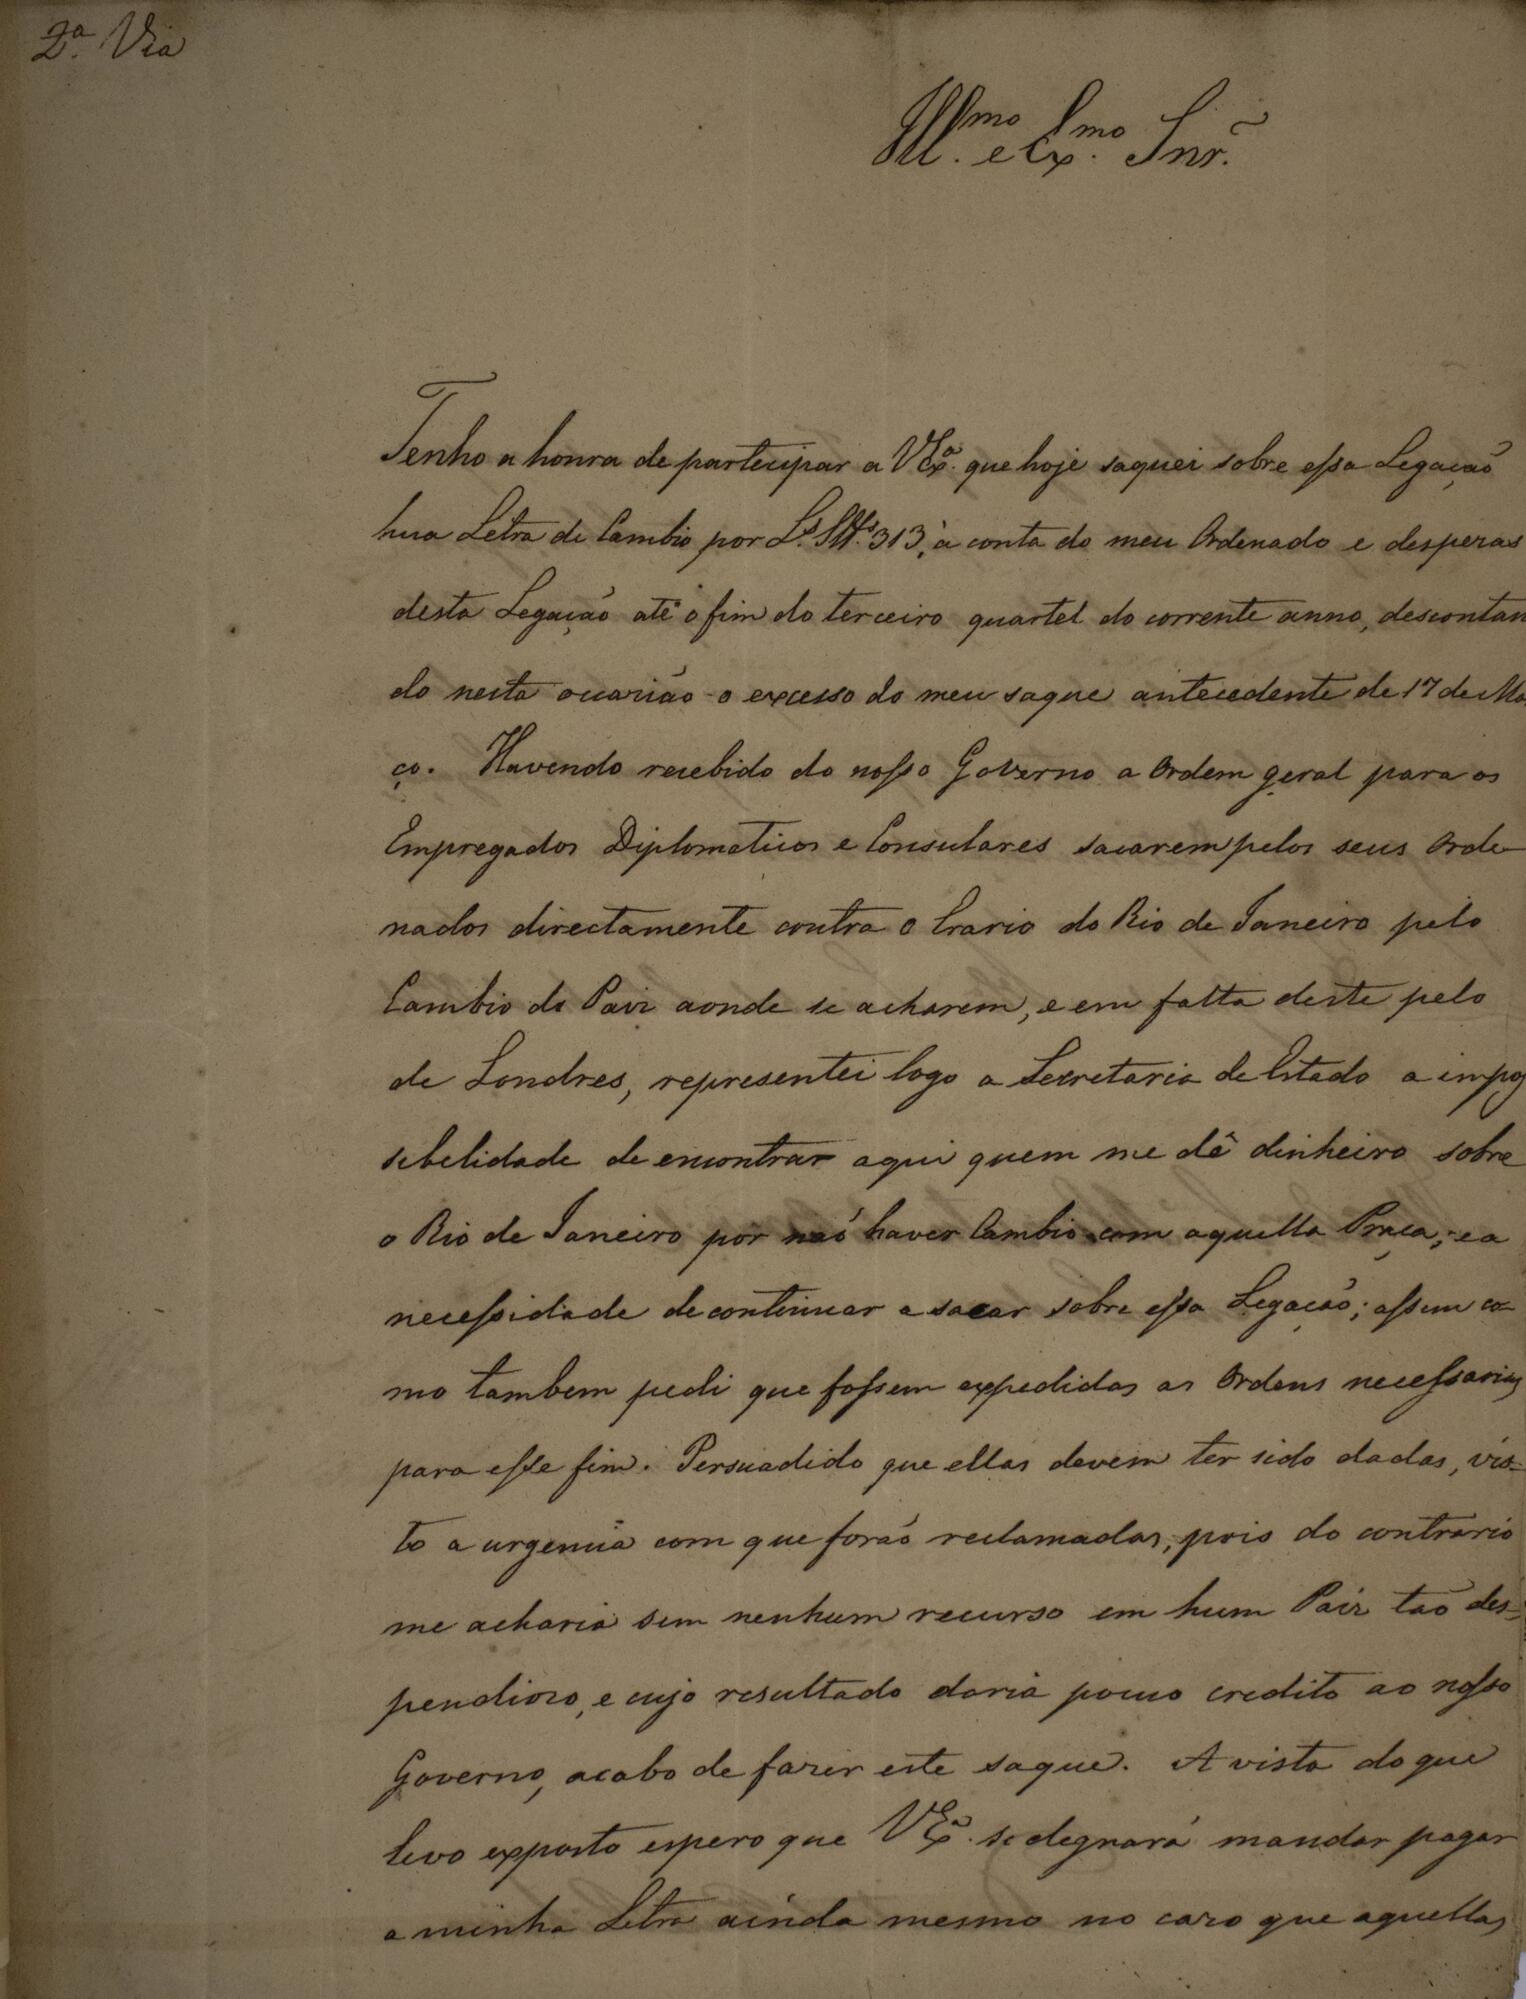 2.ª Via
Ill.mo e Ex.mo Snr.
Tenho a honra de partecipar a VEx.ª que hoje saquei sobre essa Legação
hua Letra de Cambio por L.s St.s 313, à conta do meu Ordenado e despezas
desta Legação atè o fim do terceiro quartel do corrente anno, descontan
do nesta occazião o excesso do meu saque antecedente de 17 de Ma
ço. Havendo recebido do nosso Governo a Ordem geral para os
Empregados Diplomaticos e Consulares sacarem pelos seus Orde-
nados directamente contra o Erario do Rio de Janeiro pelo
Cambio do Paiz aonde se acharem, e em falta deste pelo
de Londres, representei logo a Secretaria de Estado a impos
sebelidade de encontrar aqui quem me dê dinheiro sobre
o Rio de Janeiro por naõ haver Cambio com aquella Praça; e a
necessidade de continuar a sacar sobre essa Legação; assim co-
mo tambem pedi que fossem expedidas as Ordens necessarias
para esse fim. Persuadido que ellas devem ter sido dadas, vis-
to a urgencia com que foraõ reclamadas, pois do contrario
me acharia sem nenhum recurso em hum Paiz taõ des-
pendiozo, e cujo resultado daria pouco credito ao nosso
Governo, acabo de fazer este saque. A vista do que
levo exposto espero que VEx.ª se degnará mandar pagar
a minha Letra ainda mesmo no cazo que aquellas